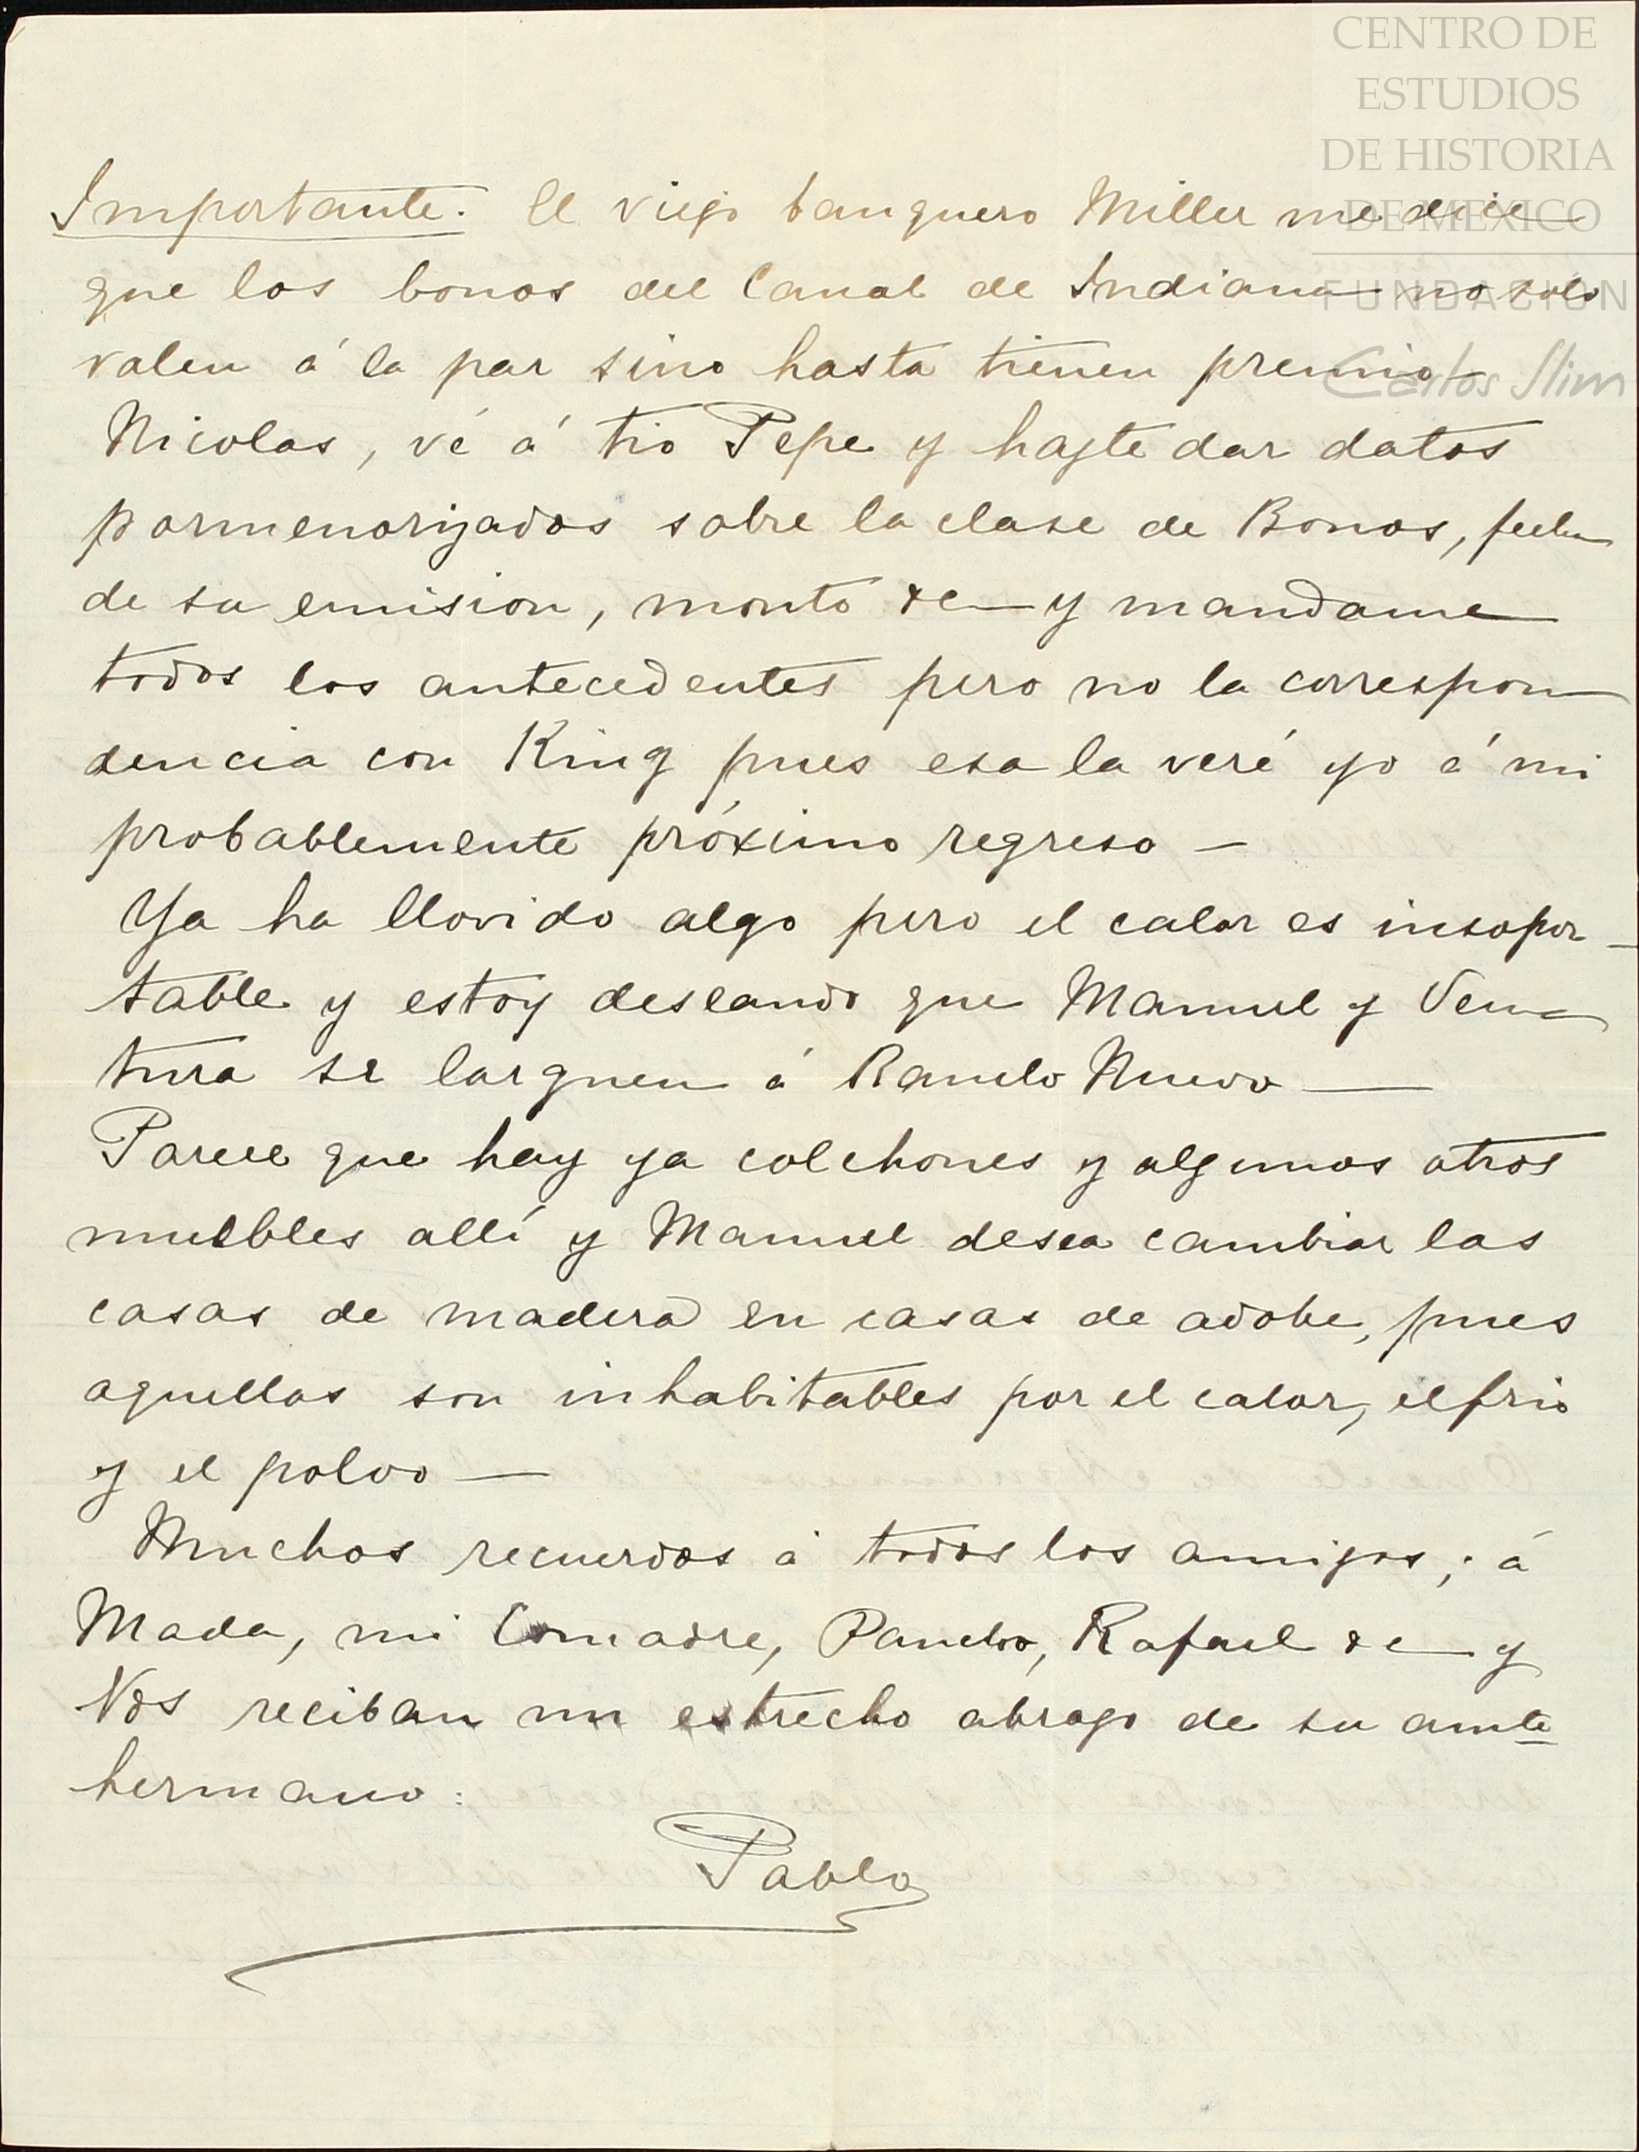 CENTRO DE
ESTUDIOS
DE HISTORIA
DE MEXICO
FUNDACION
Carlos Slim
Importante. El viejo banquero Miller me dice
que los bonos del Canal de Indiana no solo
valen á la par sino hasta tienen premio.
Nicolas, vé á tio Pepe y hazte dar datos
pormenorizados sobre la clase de Bonos, fecha
de su emision, monto &c— y mandame
todos los antecedentes pero no la correspon
dencia con King pues esa la veré yo á mi
probablemente próximo regreso —
Ya ha llovido algo pero el calor es insopor-
table y estoy deseando que Manuel y Ven-
tura se larguen á Rancho Nuevo —
Parece que hay ya colchones y algunos otros
muebles allí y Manuel desea cambiar las
casas de madera en casas de adobe, pues
aquellas son inhabitables por el calor, el frio
y el polvo —
Muchos recuerdos á todos los amigos; á
Mada, mi Comadre, Pancho, Rafael &c— y
Vds reciban un estrecho abrazo de su amte
hermano:
Pablo